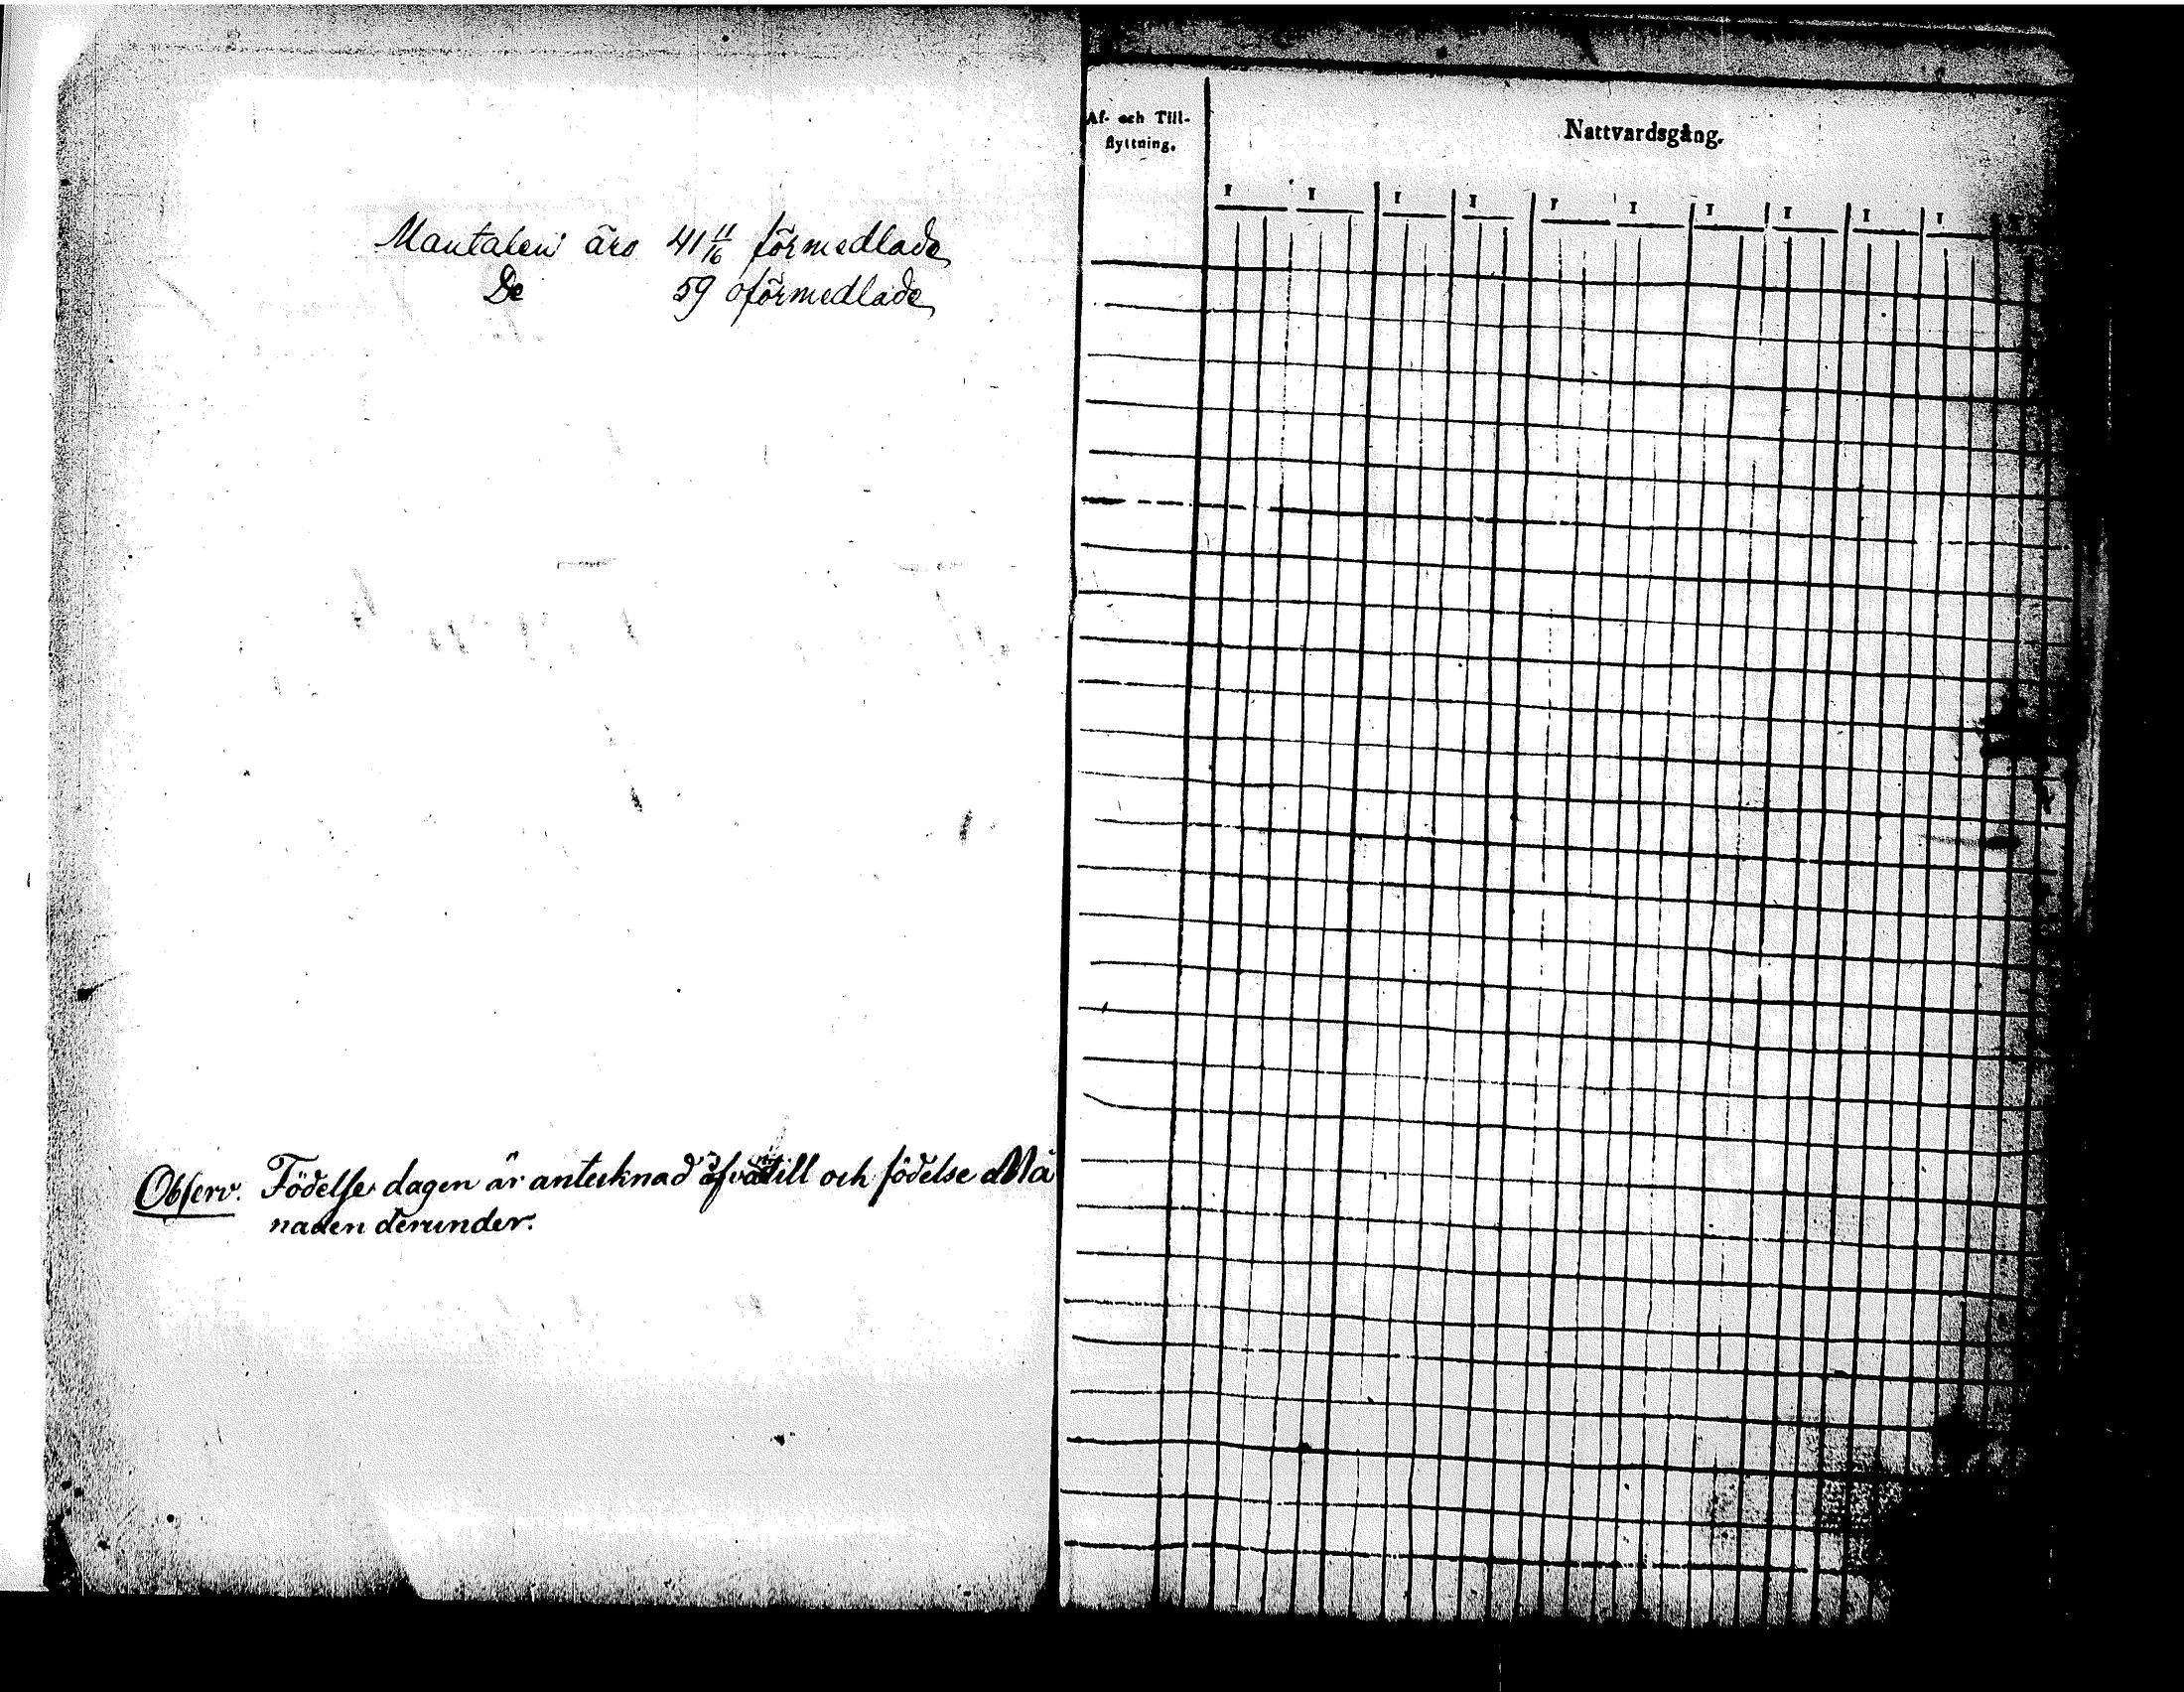 Mantalen äro 41 11/16 förmedlade
De 59 oförmedlade
Observ. Födelse dagen är antecknad till och födelse Må
naden derunder.
Af- och Till-
flyttning.
Nattvardsgång.
1 1 1 1 1 1 1 1 1 1